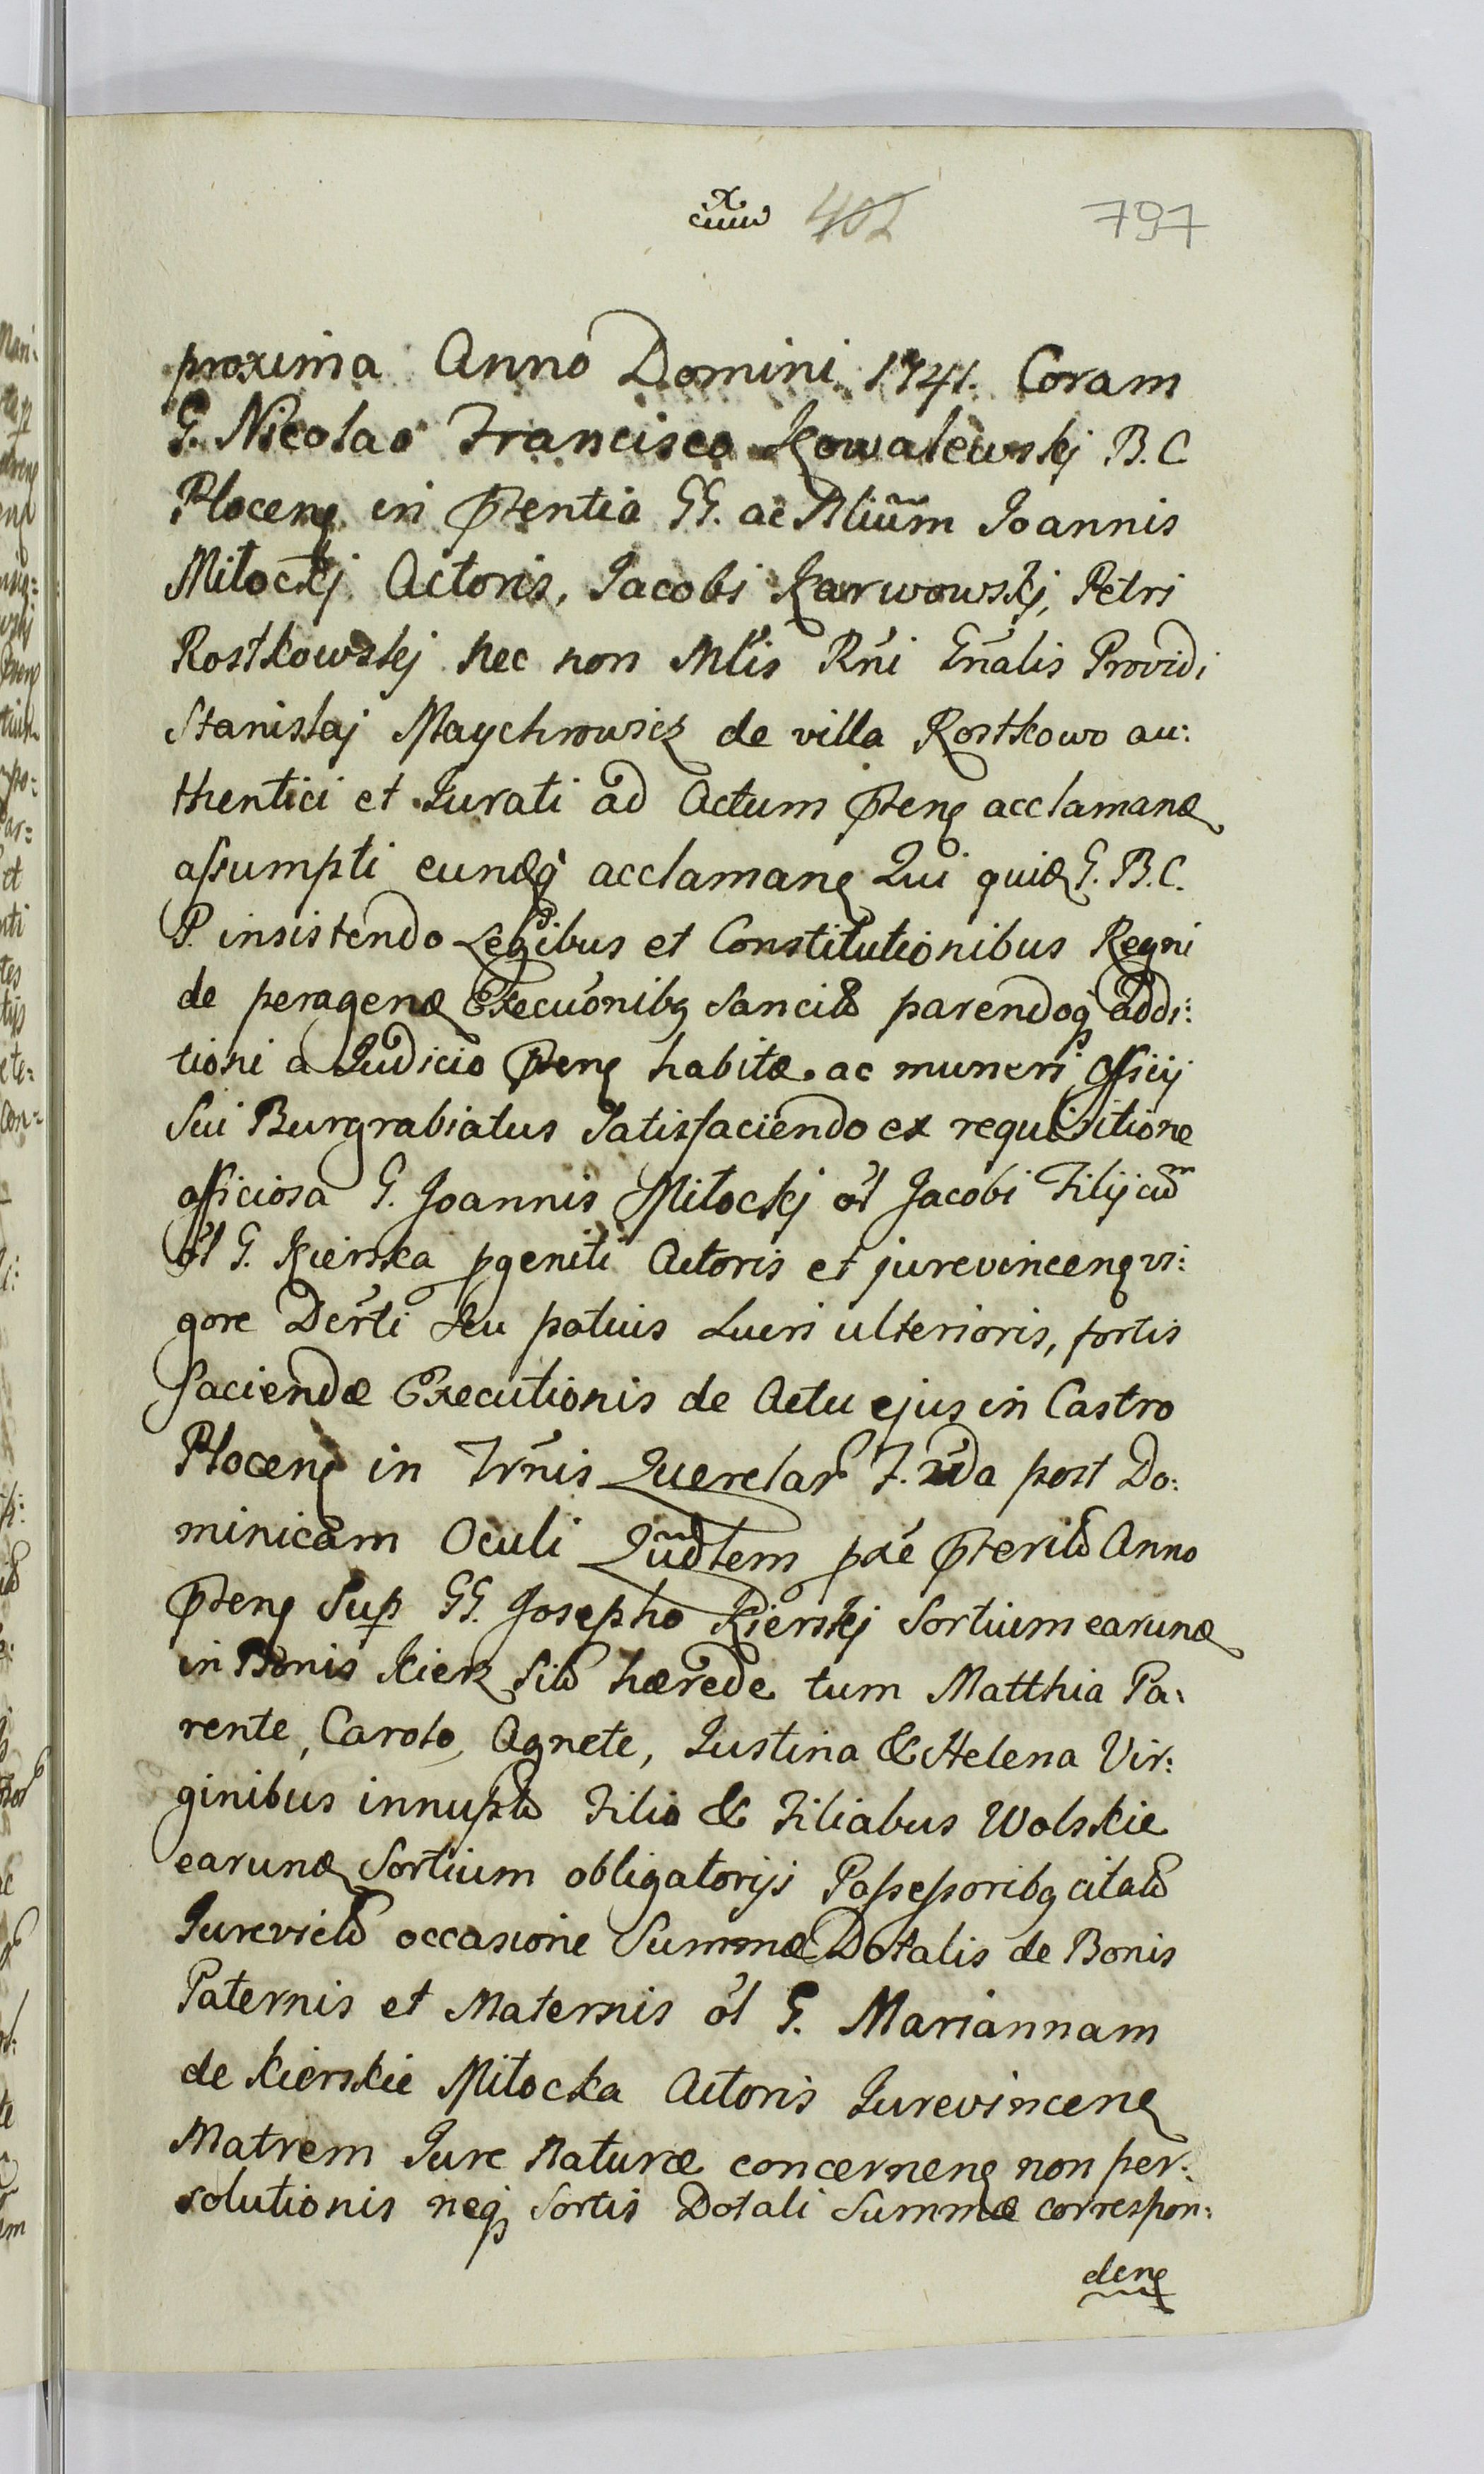 402 797
proxima Anno Domini 1741. Coram
G. Nicolao Francisco Kowalewskj B. C
Plocenς in Pñtentia GG. ac Nlium Joannis
Miłockj Actoris, Jacobi Karwowskj, Petri
Rostkowskj nec non Mlis Rńi Gńalis Providi
Stanislaj Maychrowicz de villa Rostkowo au:
thentici et Jurati ad Actum Pñtenς acclamanđ
assumpti eunđq acclamanς Qui quiđ G. B. C.
P. insistendo Legibus et Constitutionibus Regni
de peragenđ Execuónibq sancitis parendoq addi:
tioni a Judicio Pñtenς habitæ ac muneri officij
sui Burgrabiatus satisfaciendo ex requisitione
officiosa G. Joannis Miłockj ol Jacobi Filij cum
ol G. Kierska pgeniti Actoris et jurevincenς vi:
gore Dĕrti seu potius Lucri ulterioris, fortis
faciendæ Executionis de Actu ejus in Castro
Plocenς in Trńis Querelar F. 2da post Do:
minicam Oculi Qũdtem pxé Pñteritis Anno
Pñtenς sup GG. Josepho Kierskj Sortium earunđ
in Bonis Kierz sitis hærede tum Matthia Pa:
rente, Carolo, Agnete, Justina & Helena Vir:
ginibus innuptis Filio & Filiabus Wolskie
earunđ Sortium obligatorijs Possessoribq citatis
Jurevictis occasione Summæ Dotalis de Bonis
Paternis et Maternis ol G. Mariannam
de Kierskie Miłocka Actoris Jurevincenς
Matrem Jure Naturæ concernenς non per:
solutionis neq sortis Dotali Summæ correspon:
denς